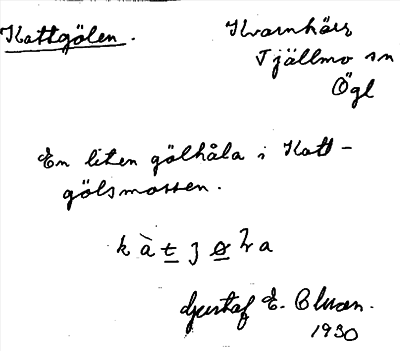 Kattgölen.
Kvarnhärs
Tjällmo sn
Ögl
En liten gölhåla i Katt-
gölsmossen.
Gustaf E.
1930